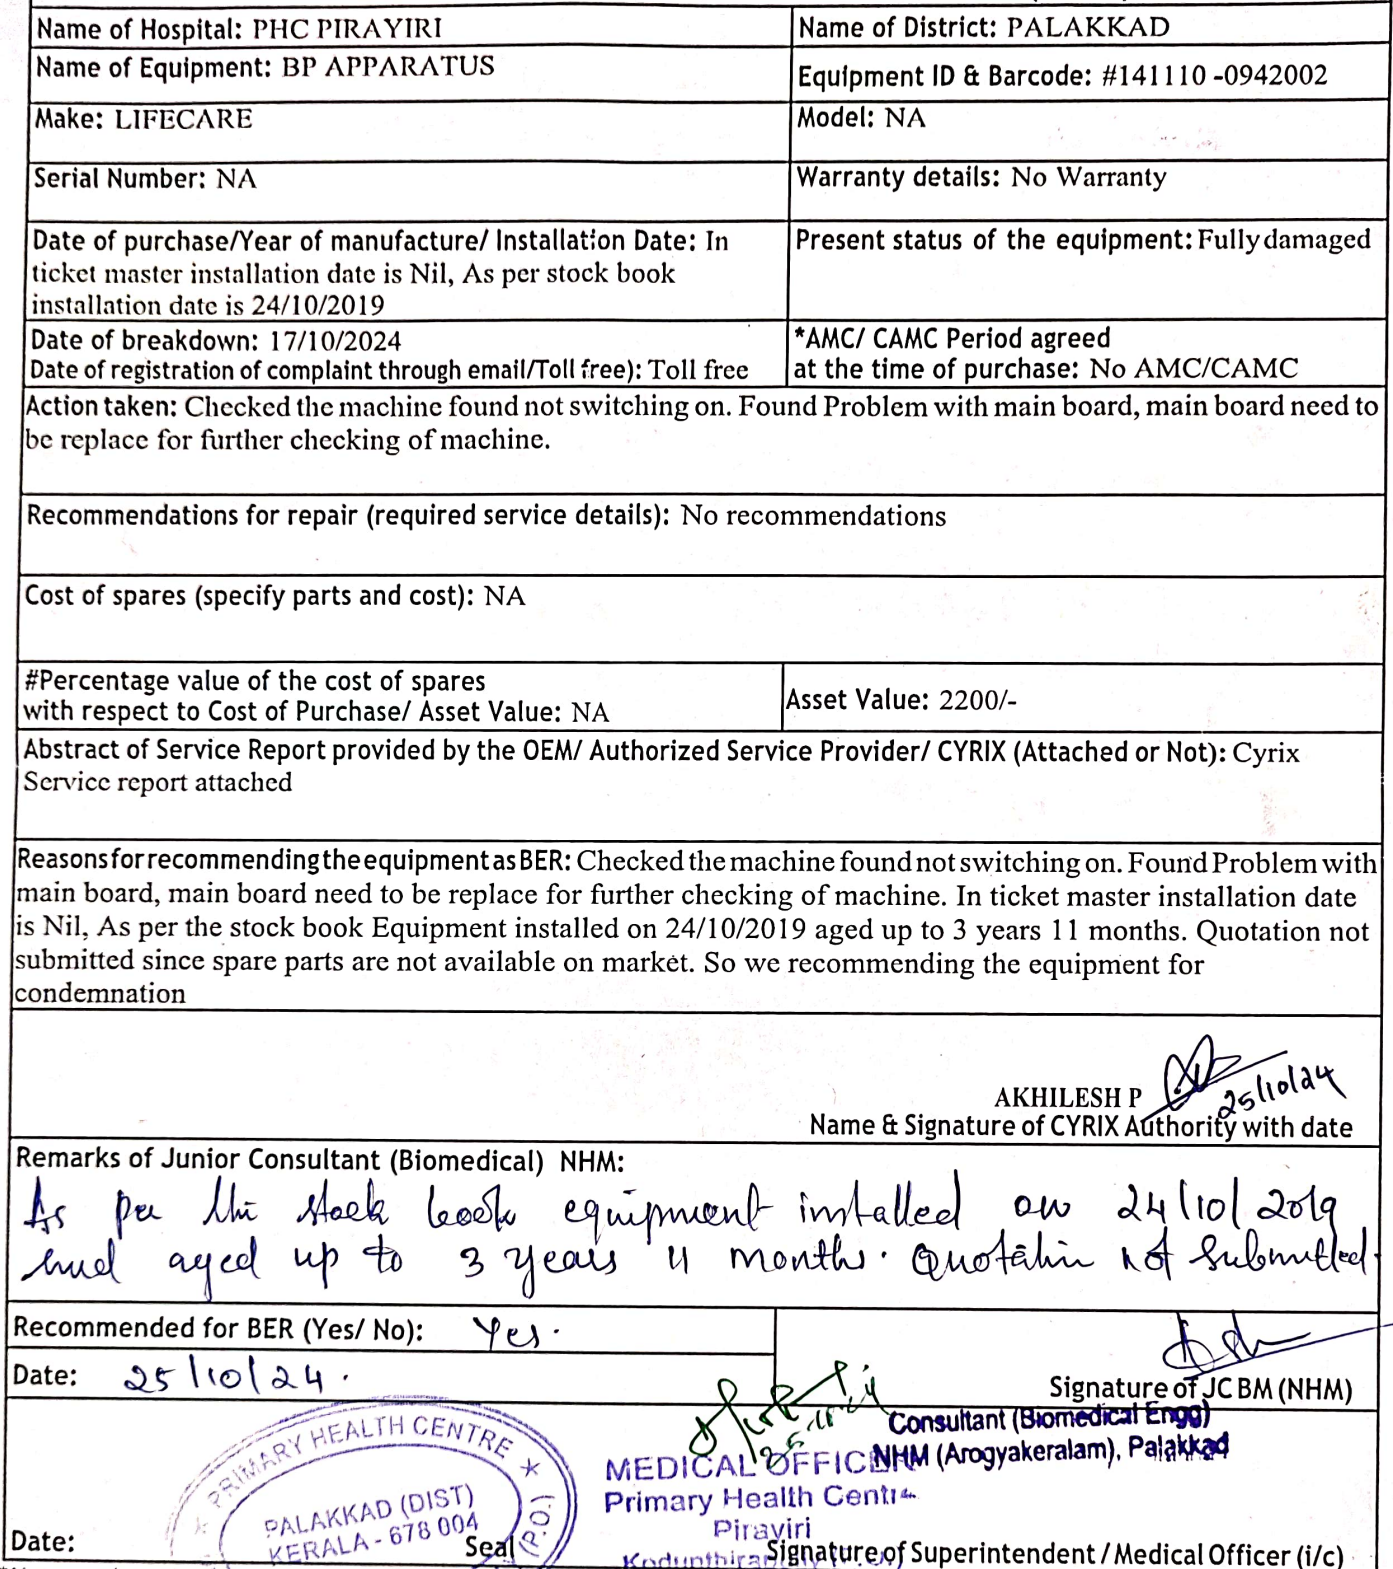 Name of Hospital: PHC PIRAYIRI
Name of District: PALAKKAD
Name of Equipment: BP APPARATUS
Equipment ID & Barcode: #141110 -0942002
Make: LIFECARE
Model: NA
Serial Number: NA
Warranty details: No Warranty
Date of purchase/Year of manufacture/ Installation Date: In
ticket master installation date is Nil, As per stock book
installation date is 24/10/2019
Present status of the equipment: Fully damaged
Date of breakdown: 17/10/2024
Date of registration of complaint through email/Toll free): Toll free
*AMC/ CAMC Period agreed
at the time of purchase: No AMC/CAMC
Action taken: Checked the machine found not switching on. Found Problem with main board, main board need to
be replace for further checking of machine.
Recommendations for repair (required service details): No recommendations
Cost of spares (specify parts and cost): NA
#Percentage value of the cost of spares
with respect to Cost of Purchase/ Asset Value: NA
Asset Value: 2200/-
Abstract of Service Report provided by the OEM/ Authorized Service Provider/ CYRIX (Attached or Not): Cyrix
Service report attached
Reasons for recommending the equipment as BER: Checked the machine found not switching on. Found Problem with
main board, main board need to be replace for further checking of machine. In ticket master installation date
is Nil, As per the stock book Equipment installed on 24/10/2019 aged up to 3 years 11 months. Quotation not
submitted since spare parts are not available on market. So we recommending the equipment for
condemnation
AKHILESH P
25/10/24
Name & Signature of CYRIX Authority with date
Remarks of Junior Consultant (Biomedical) NHM:
As per the stock book equipment installed on 24/10/2019
and aged up to 3 years 11 months. Quotation not submitted.
Recommended for BER (Yes/ No): Yes.
Date: 25/10/24.
Signature of JC BM (NHM)
Consultant (Biomedical Engg)
NHM (Arogyakeralam), Palakkad
MEDICAL OFFICER
Primary Health Centre
Pirayiri
PRIMARY HEALTH CENTRE
PALAKKAD (DIST)
KERALA - 678 004
(P.O.)
Date:
Seal
Signature of Superintendent / Medical Officer (i/c)